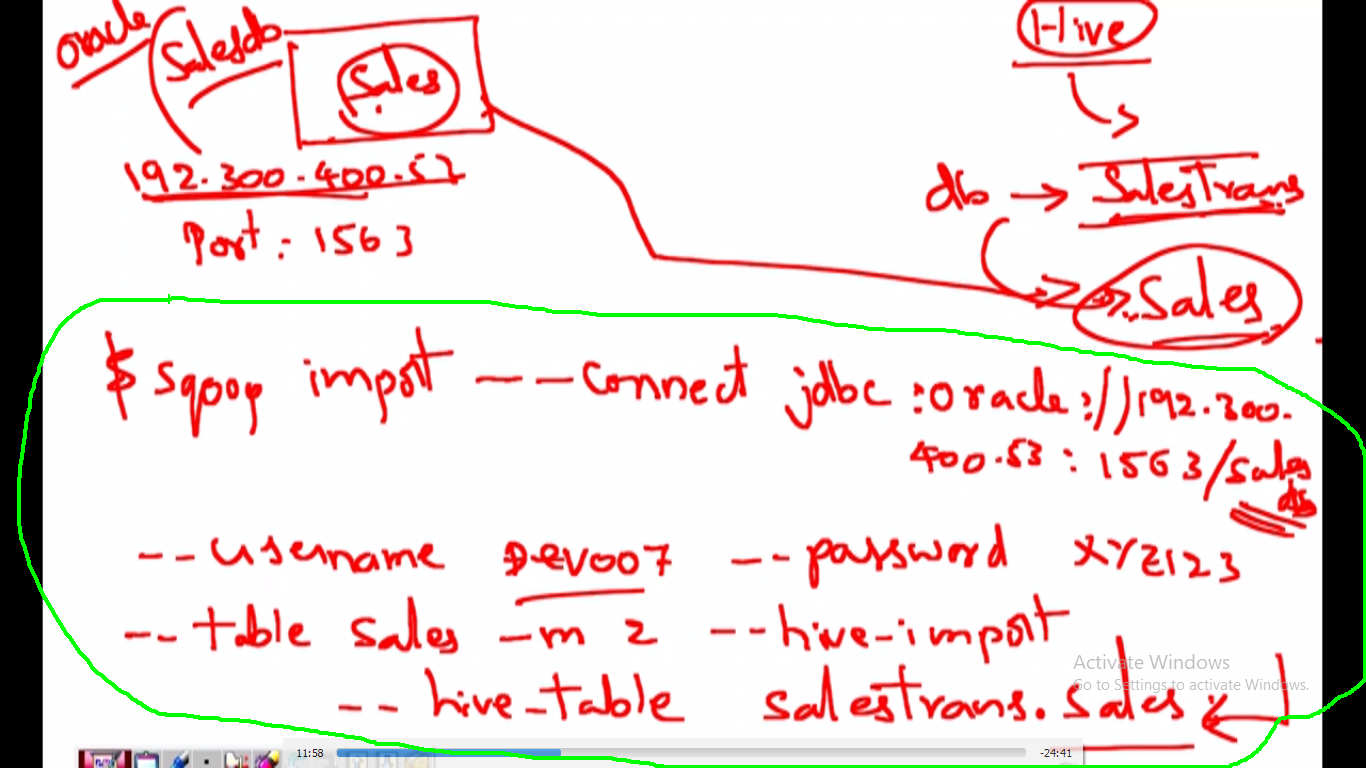 oracle
Salesdb
Sales
192.300.400.53
Port: 1563
Hive
db → SalesTrans
Sales
$ sqoop import --connect jdbc:oracle://192.300.
400.53:1563/sales
db
--username Dev007 --password XYZ123
--table sales -m 2 --hive-import
--hive-table salestrans.sales;
Activate Windows
Go to Settings to activate Windows.
11:58
-24:41